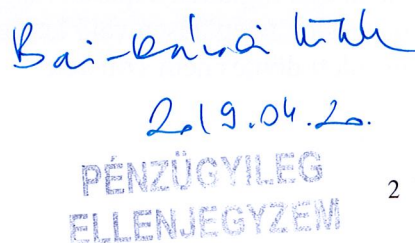 2019.04.20.
PÉNZÜGYILEG
ELLENJEGYZEM
2